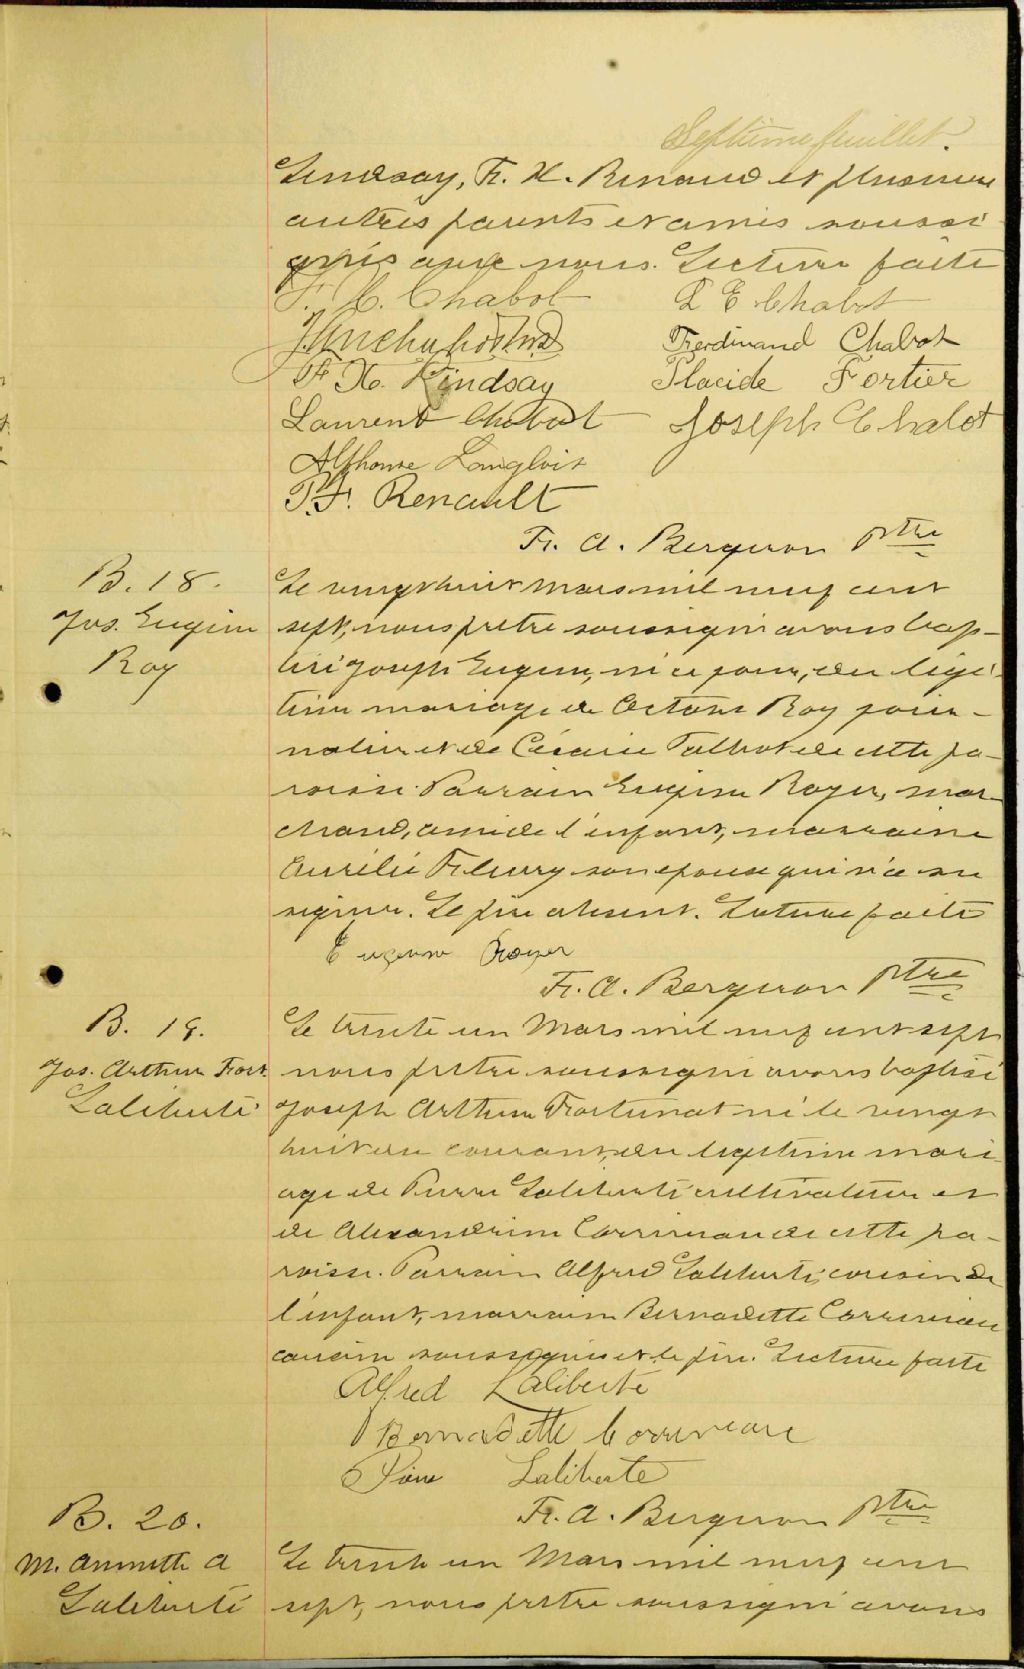 Septième feuillet.
Lindsay, F. X. Renaud et plusieurs
autres parents et amis soussi-
gnés avec nous. Lecture faite
F. X. Chabot
L E Chabot
Ferdinand Chabot
F X. Lindsay
Placide Fortier
Laurent Chabot
Joseph Chabot
Alphonse Langlois
P. F. Renault
Fr. A. Bergeron Ptre
B. 18.
Jos. Eugène
Roy
Le vingt huit Mars mil neuf cent
sept, nous prêtre soussigné avons bap-
tisé Joseph Eugène, né ce jour, du légi-
time mariage de Octave Roy jour-
nalier et de Césarie Talbot de cette pa-
roisse. Parrain Eugène Royer, mar-
chand, ami de l'enfant, marraine
Aurélie Fleury son épouse qui n'a su
signer. Le père absent. Lecture faite
Eugène Royer
Fr. A. Bergeron Ptre
B. 19.
Jos. Arthur Fort.
Laliberté
Le trente un Mars mil neuf cent sept
nous prêtre soussigné avons baptisé
Joseph Arthur Fortunat né le vingt
huit du courant, du légitime mari-
age de Pierre Laliberté cultivateur et
de Alexandrine Corriveau de cette pa-
roisse. Parrain Alfred Laliberté, cousin de
l'enfant, marraine Bernadette Corriveau
cousine soussignés et le père. Lecture faite
Alfred Laliberté
Bernadette Corriveau
Pierre Laliberté
Fr. A. Bergeron Ptre
B. 20.
M. Annette A
Laliberté
Le trente un Mars mil neuf cent
sept, nous prêtre soussigné avons